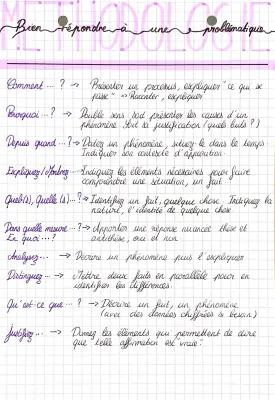 METHODOLOGIE
Bien répondre à une problématique
Comment ... ? → Présenter un processus, expliquer "ce qui se
passe" => Raconter, expliquer
Pourquoi ... ? → Double sens soit présenter les causes d'un
phénomène. Soit sa justification (quels buts ?)
Depuis quand ... ? → Dater un phénomène, situez-le dans le temps
Indiquer son contexte d'apparition.
Expliquez / Montrez → Indiquez les éléments nécessaires pour faire
comprendre une situation, un fait.
Quel(s), Quelle(s) ... ? → Identifier un fait, quelque chose. Indiquez la
nature, l'identité de quelque chose
Dans quelle mesure ... ? → Apporter une réponse nuancée thèse et
En quoi ... ? antithèse, oui et non
Analysez... → Décrire un phénomène puis l'expliquer
Distinguez... → Mettre deux faits en parallèle pour en
identifier les différences.
Qu'est-ce que ... ? → Décrire un fait, un phénomène
(avec des données chiffrées si besoin)
Justifiez... → Donnez les éléments qui permettent de dire
que telle affirmation est "vraie".